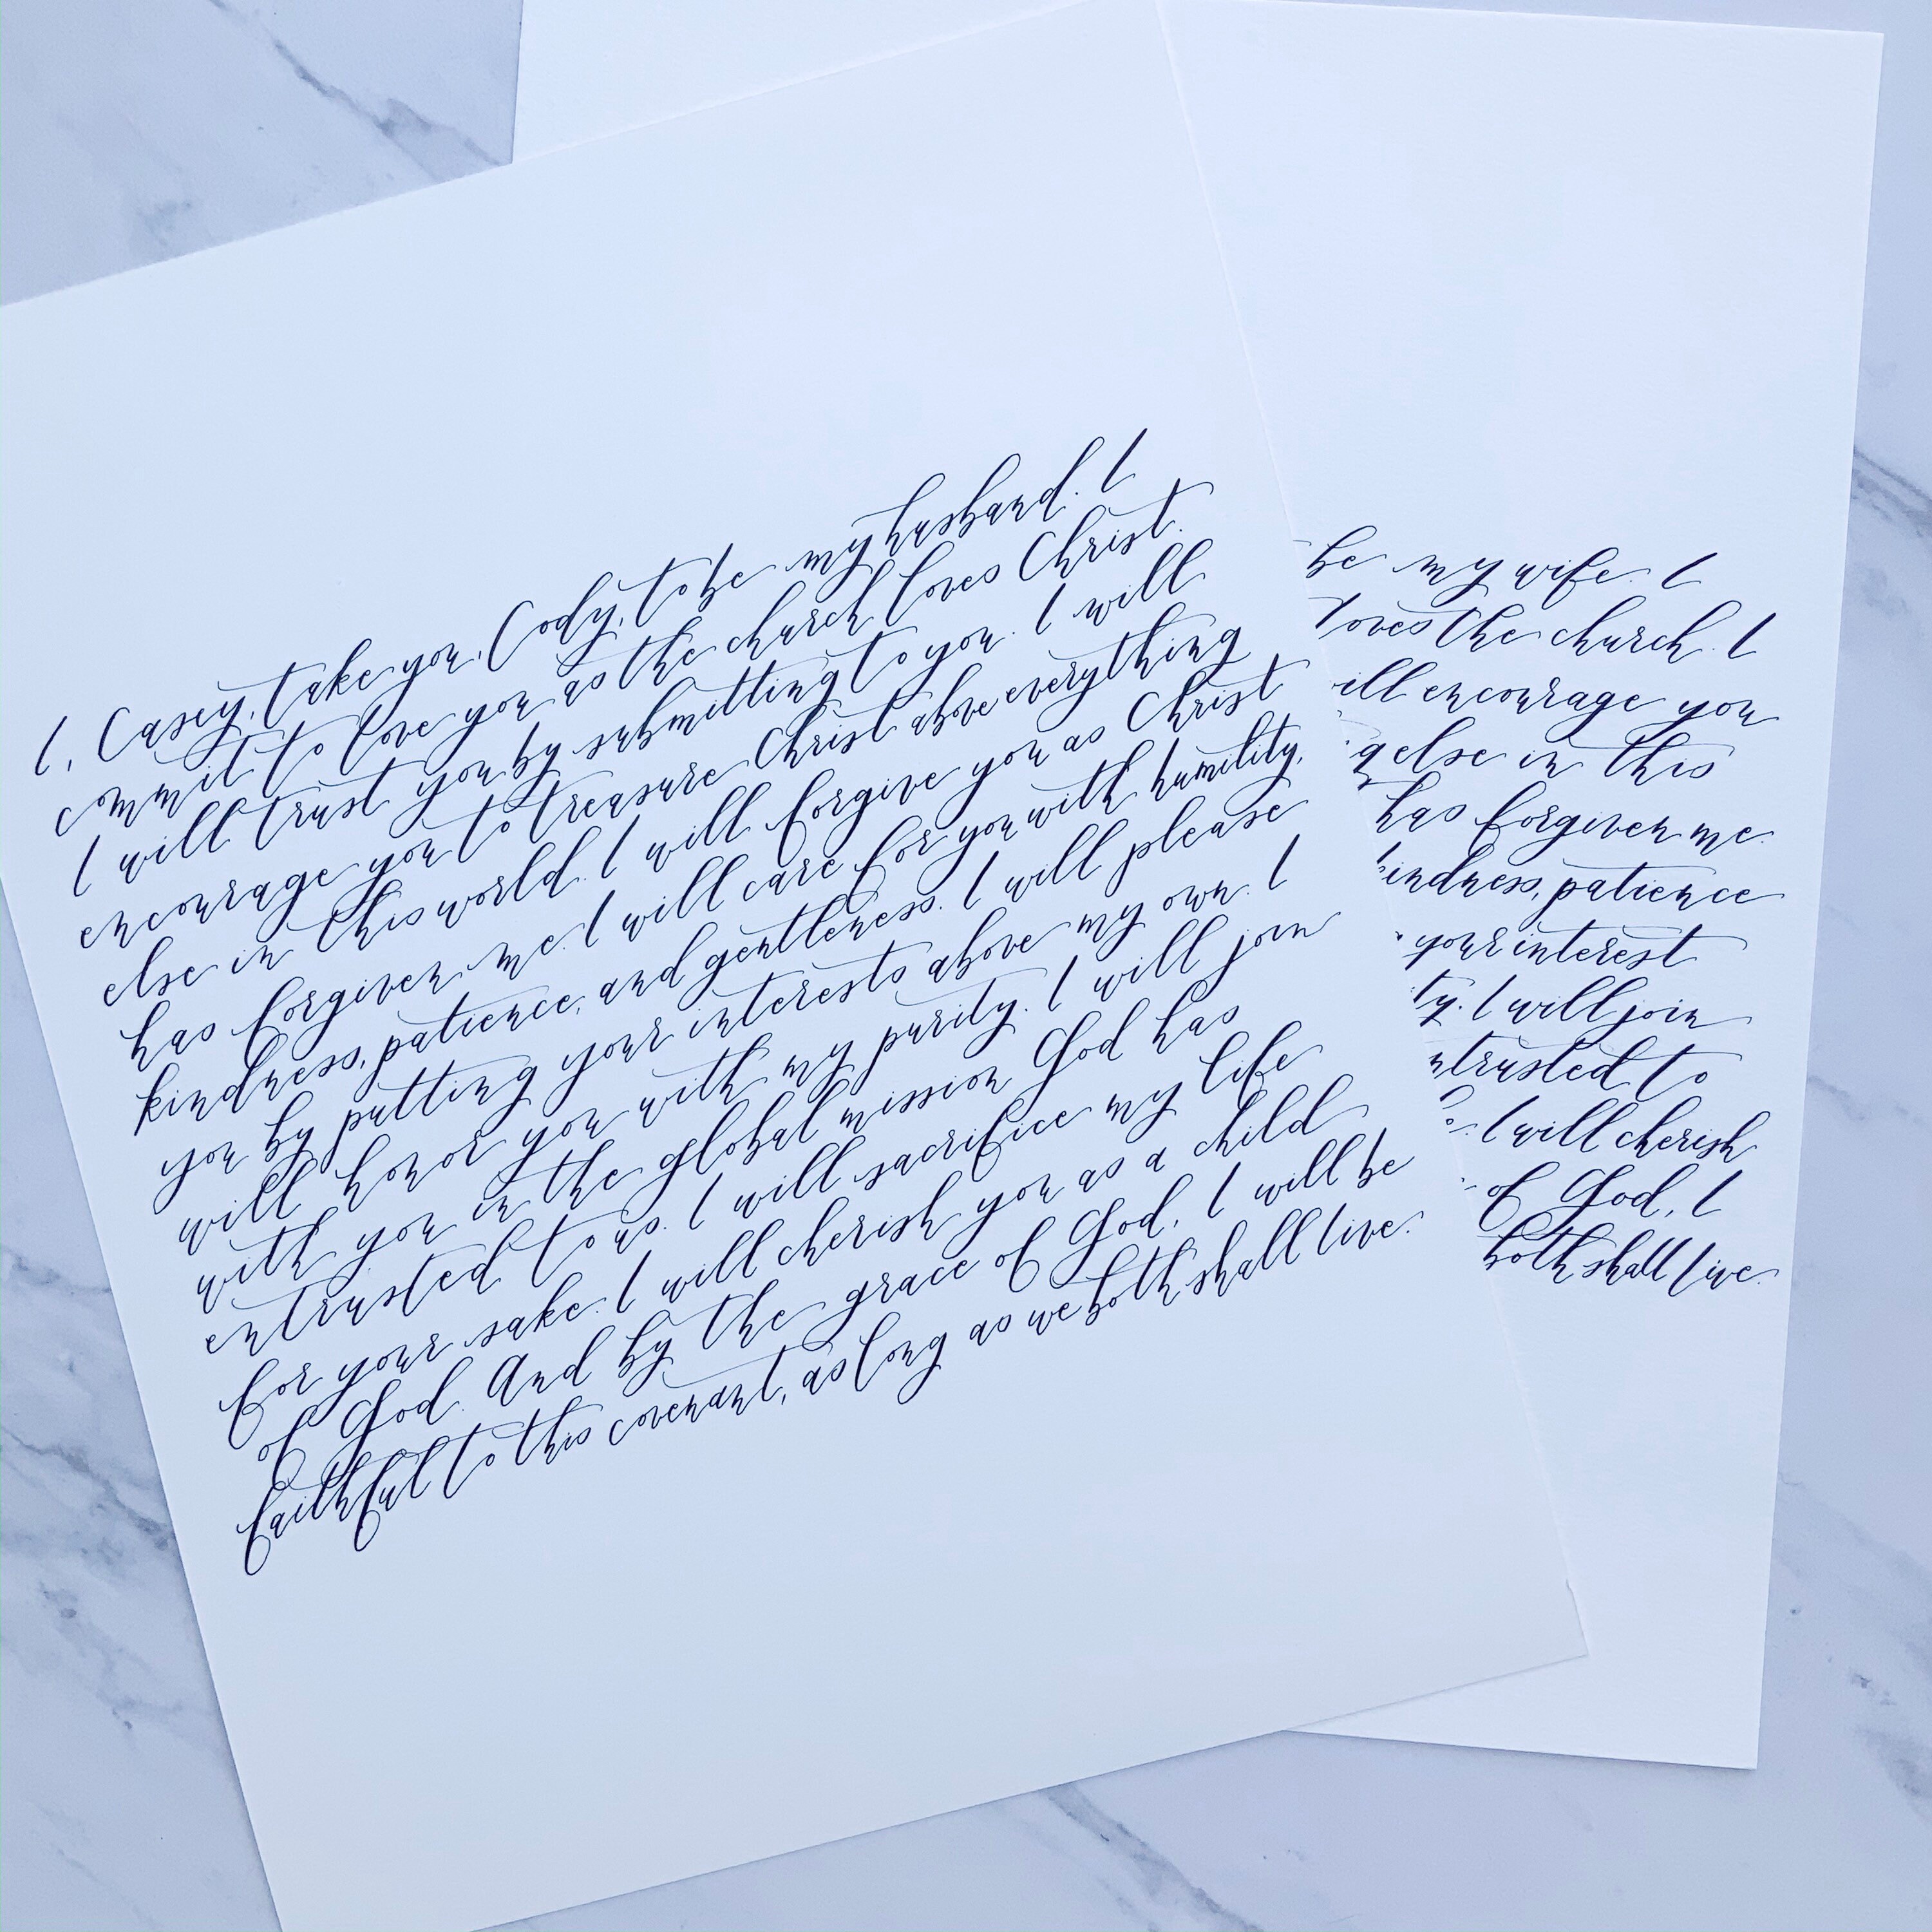 I, Casey, take you, Cody, to be my husband. I
commit to love you as the church loves Christ.
I will trust you by submitting to you. I will
encourage you to treasure Christ above everything
else in this world. I will forgive you as Christ
has forgiven me. I will care for you with humility,
kindness, patience, and gentleness. I will please
you by putting your interests above my own. I
will honor you with my purity. I will join
with you in the global mission God has
entrusted to us. I will sacrifice my life
for your sake. I will cherish you as a child
of God. And by the grace of God, I will be
faithful to this covenant, as long as we both shall live.
be my wife. I
loves the church. I
ill encourage you
g else in this
has forgiven me.
kindness, patience
your interest
ty. I will join
ntrusted to
I will cherish
of God, I
both shall live.